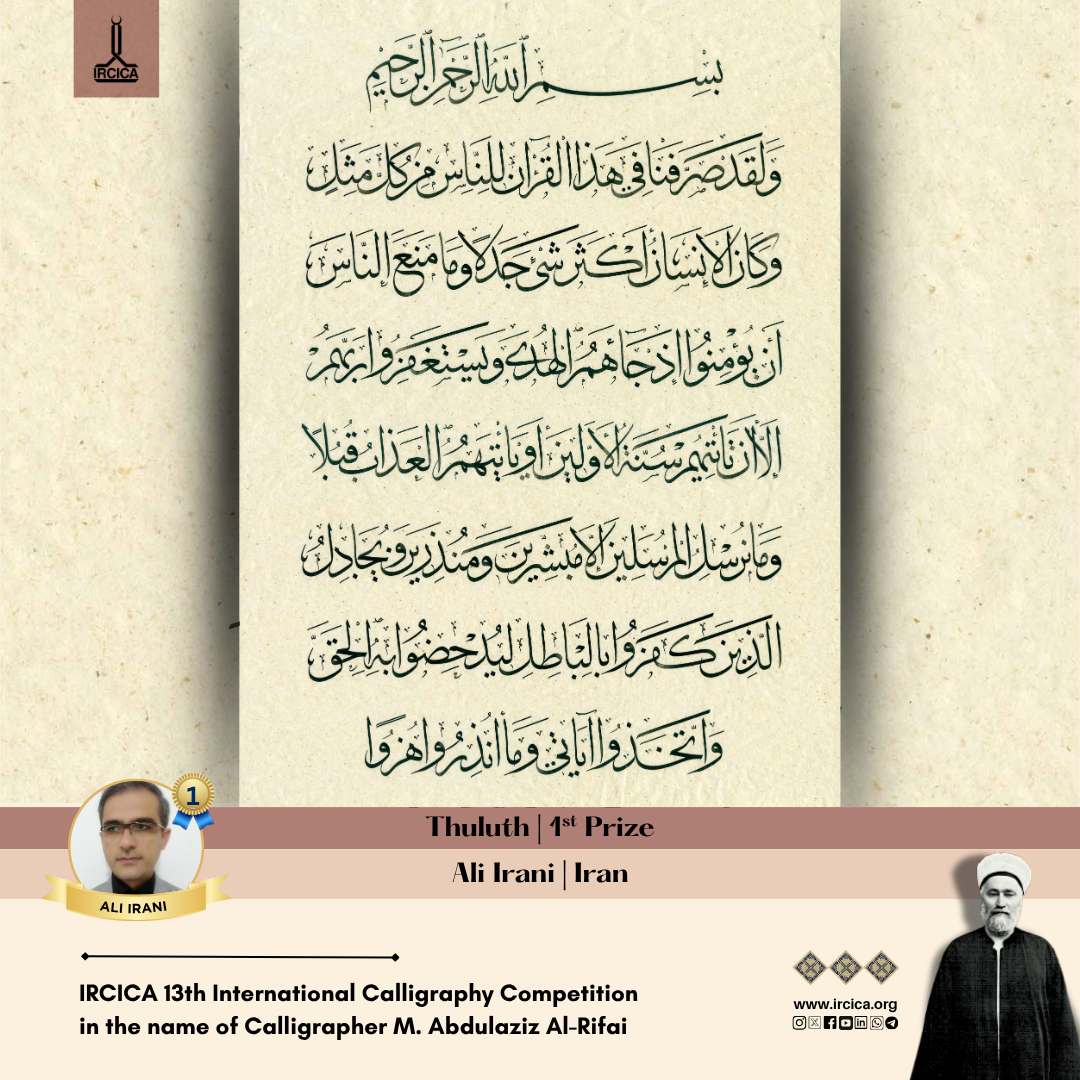 IRCICA
بسم الله الرحمن الرحيم
وَلَقَدْ صَرَّفْنَا فِي هَذَا الْقُرْآنِ لِلنَّاسِ مِنْ كُلِّ مَثَلٍ
وَكَانَ الْإِنْسَانُ أَكْثَرَ شَيْءٍ جَدَلًا وَمَا مَنَعَ النَّاسَ
أَنْ يُؤْمِنُوا إِذْ جَاءَهُمُ الْهُدَى وَيَسْتَغْفِرُوا رَبَّهُمْ
إِلَّا أَنْ تَأْتِيَهُمْ سُنَّةُ الْأَوَّلِينَ أَوْ يَأْتِيَهُمُ الْعَذَابُ قُبُلًا
وَمَا نُرْسِلُ الْمُرْسَلِينَ إِلَّا مُبَشِّرِينَ وَمُنْذِرِينَ وَيُجَادِلُ
الَّذِينَ كَفَرُوا بِالْبَاطِلِ لِيُدْحِضُوا بِهِ الْحَقَّ
وَاتَّخَذُوا آيَاتِي وَمَا أُنْذِرُوا هُزُوًا
1
Thuluth | 1st Prize
Ali Irani | Iran
ALI IRANI
IRCICA 13th International Calligraphy Competition
in the name of Calligrapher M. Abdulaziz Al-Rifai
www.ircica.org